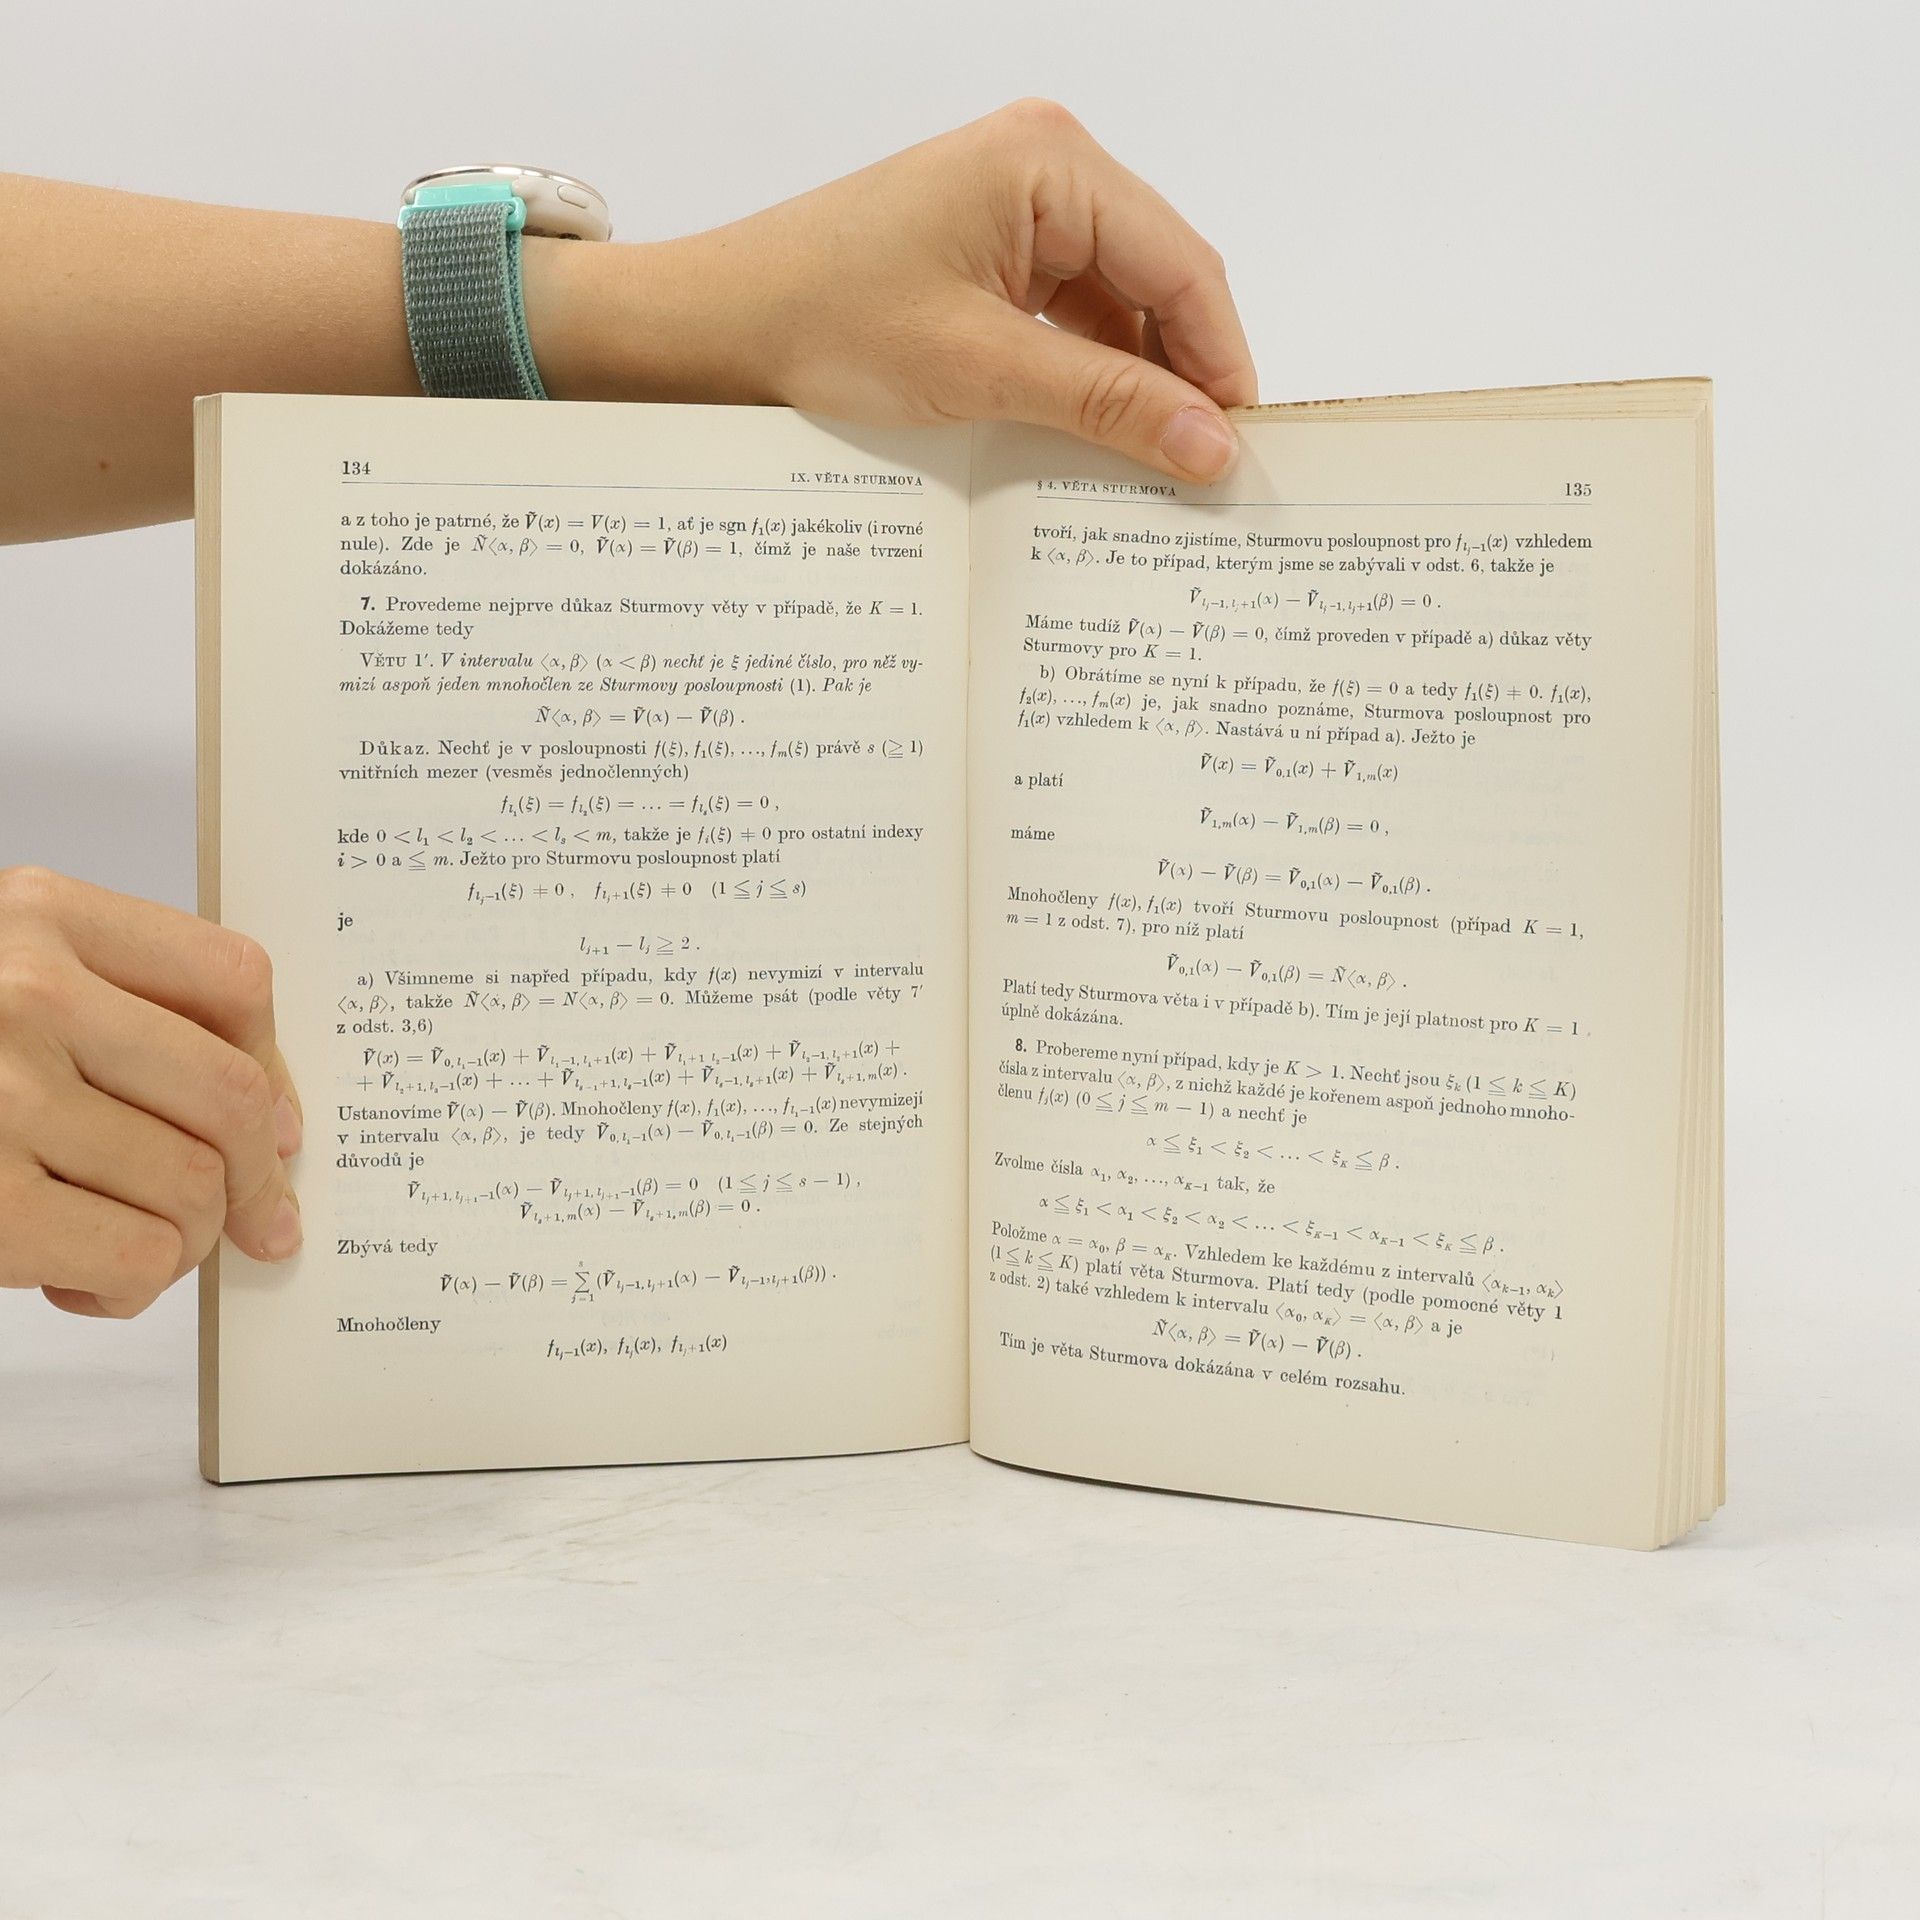 134
IX. VĚTA STURMOVA
a z toho je patrné, že Ṽ(x) = V(x) = 1, ať je sgn f₁(x) jakékoliv (i rovné
nule). Zde je Ñ⟨α, β⟩ = 0, Ṽ(α) = Ṽ(β) = 1, čímž je naše tvrzení
dokázáno.
7. Provedeme nejprve důkaz Sturmovy věty v případě, že K = 1.
Dokážeme tedy
VĚTU 1′. V intervalu ⟨α, β⟩ (α < β) nechť je ξ jediné číslo, pro něž vy-
mizí aspoň jeden mnohočlen ze Sturmovy posloupnosti (1). Pak je
Ñ⟨α, β⟩ = Ṽ(α) − Ṽ(β) .
Důkaz. Nechť je v posloupnosti f(ξ), f₁(ξ), ..., fₘ(ξ) právě s (≧ 1)
vnitřních mezer (vesměs jednočlenných)
f_{l₁}(ξ) = f_{l₂}(ξ) = ... = f_{lₛ}(ξ) = 0 ,
kde 0 < l₁ < l₂ < ... < lₛ < m, takže je fᵢ(ξ) ≠ 0 pro ostatní indexy
i > 0 a ≦ m. Ježto pro Sturmovu posloupnost platí
f_{lⱼ−1}(ξ) ≠ 0 , f_{lⱼ+1}(ξ) ≠ 0 (1 ≦ j ≦ s)
je
l_{j+1} − lⱼ ≧ 2 .
a) Všimneme si napřed případu, kdy f(x) nevymizí v intervalu
⟨α, β⟩, takže Ñ⟨α, β⟩ = N⟨α, β⟩ = 0. Můžeme psát (podle věty 7′
z odst. 3,6)
Ṽ(x) = Ṽ_{0, l₁−1}(x) + Ṽ_{l₁−1, l₁+1}(x) + Ṽ_{l₁+1, l₂−1}(x) + Ṽ_{l₂−1, l₂+1}(x) +
+ Ṽ_{l₂+1, l₃−1}(x) + ... + Ṽ_{lₛ₋₁+1, lₛ−1}(x) + Ṽ_{lₛ−1, lₛ+1}(x) + Ṽ_{lₛ+1, m}(x) .
Ustanovíme Ṽ(α) − Ṽ(β). Mnohočleny f(x), f₁(x), ..., f_{l₁−1}(x) nevymizejí
v intervalu ⟨α, β⟩, je tedy Ṽ_{0, l₁−1}(α) − Ṽ_{0, l₁−1}(β) = 0. Ze stejných
důvodů je
Ṽ_{lⱼ+1, lⱼ₊₁−1}(α) − Ṽ_{lⱼ+1, lⱼ₊₁−1}(β) = 0 (1 ≦ j ≦ s − 1) ,
Ṽ_{lₛ+1, m}(α) − Ṽ_{lₛ+1, m}(β) = 0 .
Zbývá tedy
Ṽ(α) − Ṽ(β) = ∑_{j=1}^{s} (Ṽ_{lⱼ−1, lⱼ+1}(α) − Ṽ_{lⱼ−1, lⱼ+1}(β)) .
Mnohočleny
f_{lⱼ−1}(x), f_{lⱼ}(x), f_{lⱼ+1}(x)
§ 4. VĚTA STURMOVA
135
tvoří, jak snadno zjistíme, Sturmovu posloupnost pro f_{lⱼ−1}(x) vzhledem
k ⟨α, β⟩. Je to případ, kterým jsme se zabývali v odst. 6, takže je
Ṽ_{lⱼ−1, lⱼ+1}(α) − Ṽ_{lⱼ−1, lⱼ+1}(β) = 0 .
Máme tudíž Ṽ(α) − Ṽ(β) = 0, čímž proveden v případě a) důkaz věty
Sturmovy pro K = 1.
b) Obrátíme se nyní k případu, že f(ξ) = 0 a tedy f₁(ξ) ≠ 0. f₁(x),
f₂(x), ..., fₘ(x) je, jak snadno poznáme, Sturmova posloupnost pro
f₁(x) vzhledem k ⟨α, β⟩. Nastává u ní případ a). Ježto je
Ṽ(x) = Ṽ_{0,1}(x) + Ṽ_{1,m}(x)
a platí
Ṽ_{1,m}(α) − Ṽ_{1,m}(β) = 0 ,
máme
Ṽ(α) − Ṽ(β) = Ṽ_{0,1}(α) − Ṽ_{0,1}(β) .
Mnohočleny f(x), f₁(x) tvoří Sturmovu posloupnost (případ K = 1,
m = 1 z odst. 7), pro níž platí
Ṽ_{0,1}(α) − Ṽ_{0,1}(β) = Ñ⟨α, β⟩ .
Platí tedy Sturmova věta i v případě b). Tím je její platnost pro K = 1
úplně dokázána.
8. Probereme nyní případ, kdy je K > 1. Nechť jsou ξₖ (1 ≦ k ≦ K)
čísla z intervalu ⟨α, β⟩, z nichž každé je kořenem aspoň jednoho mnoho-
členu fⱼ(x) (0 ≦ j ≦ m − 1) a nechť je
α ≦ ξ₁ < ξ₂ < ... < ξ_K ≦ β .
Zvolme čísla α₁, α₂, ..., α_{K−1} tak, že
α ≦ ξ₁ < α₁ < ξ₂ < α₂ < ... < ξ_{K−1} < α_{K−1} < ξ_K ≦ β .
Položme α = α₀, β = α_K. Vzhledem ke každému z intervalů ⟨α_{k−1}, αₖ⟩
(1 ≦ k ≦ K) platí věta Sturmova. Platí tedy (podle pomocné věty 1
z odst. 2) také vzhledem k intervalu ⟨α₀, α_K⟩ = ⟨α, β⟩ a je
Ñ⟨α, β⟩ = Ṽ(α) − Ṽ(β) .
Tím je věta Sturmova dokázána v celém rozsahu.